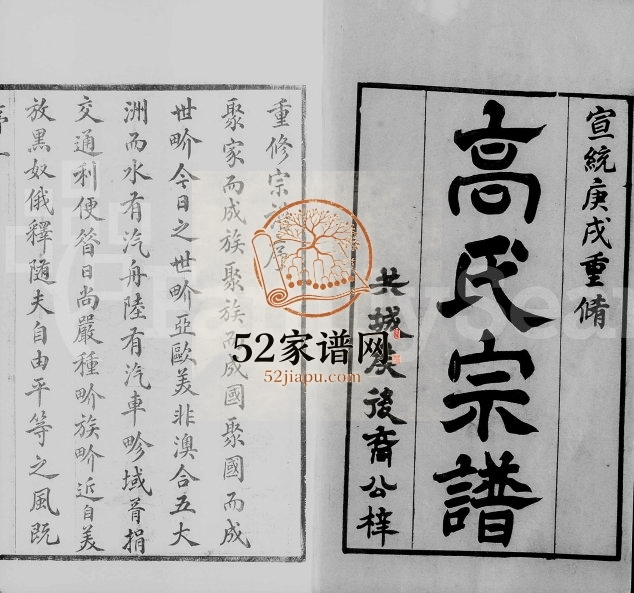 宣統庚戌重脩
高氏宗譜
共城侯後裔公梓
重修宗譜序
聚家而成族聚族而成國聚國而成
世畍今日之世畍亞歐美非澳合五大
洲而水有汽舟陸有汽車畛域胥捐
交通利便昝日尚嚴種畍族畍近自美
放黑奴俄釋随夫自由平等之風既
序一
52家谱网
52jiapu.com